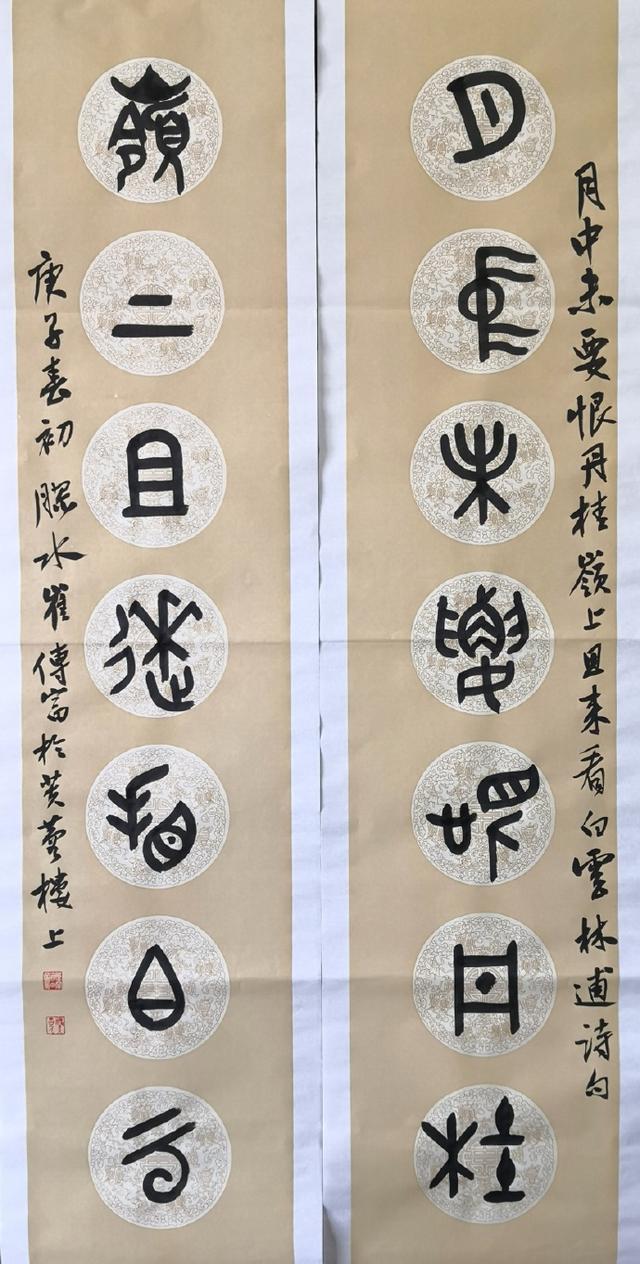 月中未要恨丹桂嶺上且来看白雲林逋詩句
月中未要恨丹桂
嶺上且來看白雲
庚子春初膠水崔傳富於樓上